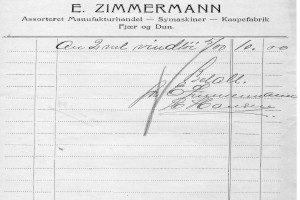 E. ZIMMERMANN
Assorteret Manufakturhandel — Symaskiner — Kaapefabrik
Fjær og Dun.
2 10. 00
Betalt
E Zimmermann
Hansen